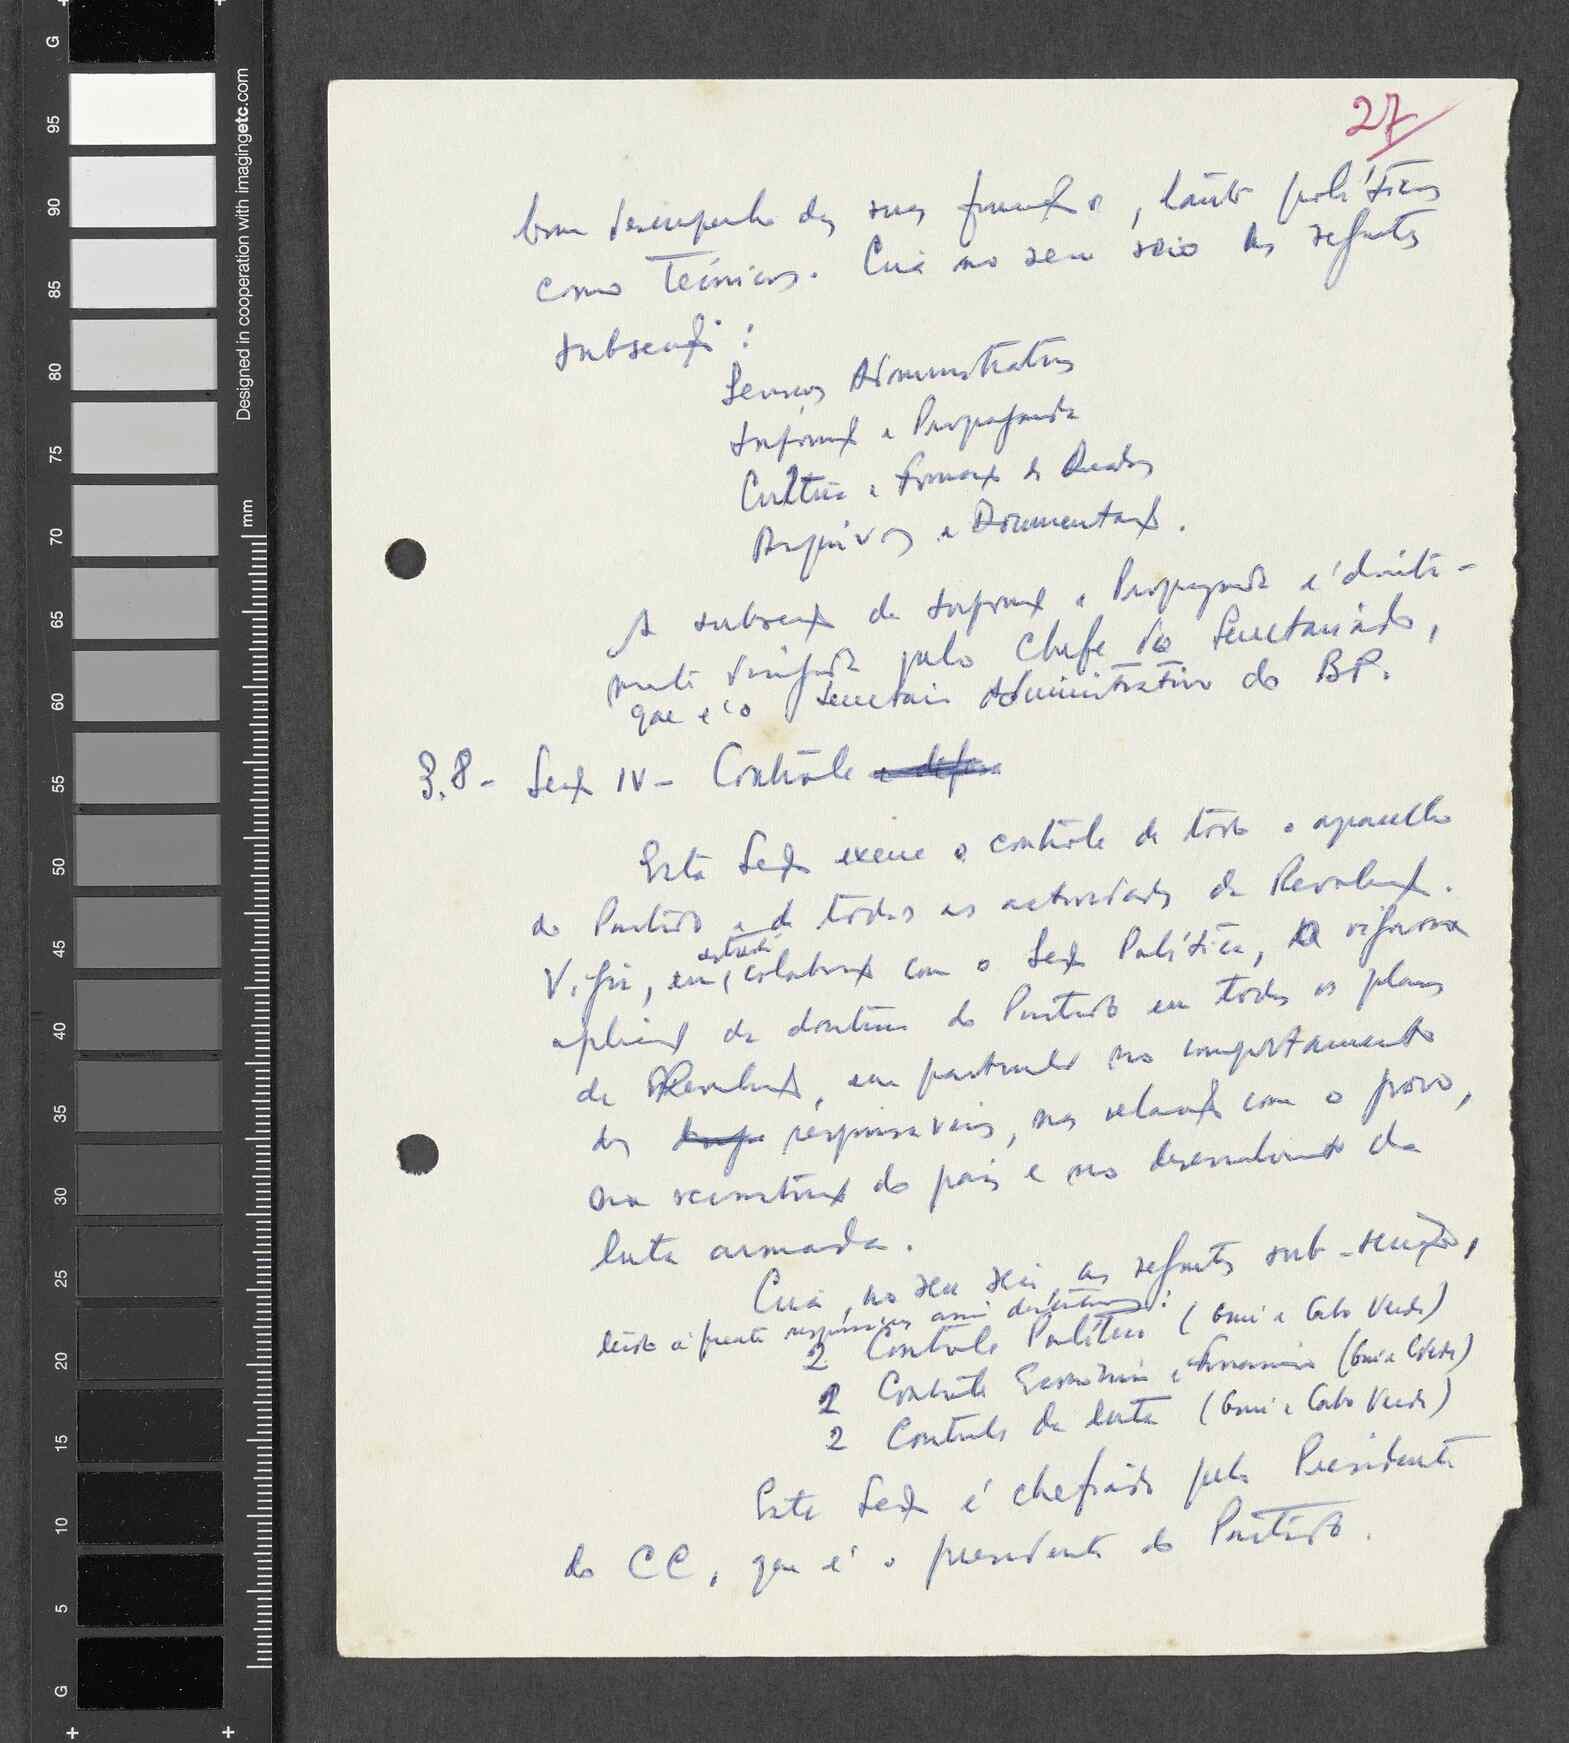 27
bom desempenho das suas funções, tanto políticas
como técnicas. Cria no seu seio as seguintes
subsecções:
Serviços Administrativos
Informação e Propaganda
Cultura e Formação de Quadros
Arquivos e Documentação.
A subsecção de Informação e Propaganda é directa-
mente dirigida pelo Chefe do Secretariado,
que é o Secretário Administrativo do BP.
3.8- Secção IV - Contrôle e defesa
Esta Secção exerce o contrôle de todo o aparelho
do Partido e de todas as actividades da Revolução.
Vigia, em estreita colaboração com a Secção Política, a rigorosa
aplicação da doutrina do Partido em todos os planos
da Revolução, em particular no comportamento
dos responsáveis, nas relações com o povo,
na reconstrução do país e no desenvolvimento da
luta armada.
Cria, no seu seio, as seguintes sub-secções,
tendo à frente responsáveis assim distribuídos:
2 Controle Político (Guiné e Cabo Verde)
2 Controle Económico e Financeiro (Guiné e C. Verde)
2 Controle da luta (Guiné e Cabo Verde)
Esta Secção é chefiada pelo Presidente
do CC, que é o presidente do Partido.
Designed in cooperation with imagingetc.com
mm
G
95
90
85
80
75
70
65
60
55
50
45
40
35
30
25
20
15
10
5
G